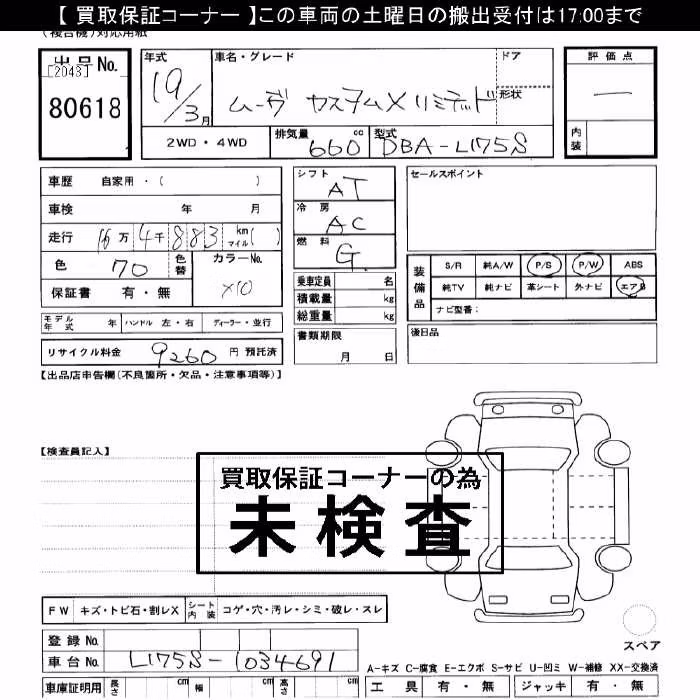 【 買取保証コーナー 】この車両の土曜日の搬出受付は17:00まで
(複合機)対応用紙
出品 No.
[2043]
80618
年式
19/3月
車名・グレード
ムーヴ カスタムX リミテッド
ドア
形状
評価点
―
内装
2WD・4WD
排気量 660 cc
型式 DBA-L175S
車歴 自家用・( )
車検 年 月
走行 16万 4千 883 km マイル( )
色 70 色替
カラーNo. X10
保証書 有・無
シフト AT
冷房 AC
燃料 G
乗車定員 名
積載量 kg
総重量 kg
セールスポイント
装備品
S/R 純A/W P/S P/W ABS
純TV 純ナビ 革シート 外ナビ エアB
ナビ型番:
モデル年式 年 ハンドル 左・右 ディーラー・並行
リサイクル料金 9260 円 預託済
書類期限
月 日
後日品
【出品店申告欄(不良箇所・欠品・注意事項等)】
【検査員記入】
買取保証コーナーの為
未検査
FW キズ・トビ石・割レX シート内装 コゲ・穴・汚レ・シミ・破レ・スレ
スペア
登録 No.
車台 No. L175S-1034691
A-キズ C-腐食 E-エクボ S-サビ U-凹ミ W-補修 XX-交換済
車庫証明用 長さ cm 幅 cm 高さ cm
工具 有・無 ジャッキ 有・無